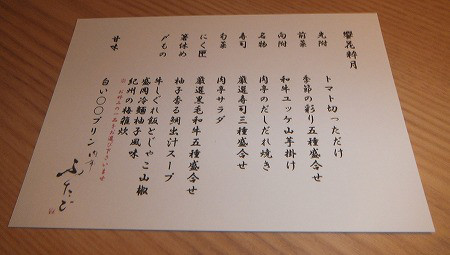 響花粋月
先附 トマト切っただけ
前菜 季節の彩り五種盛合せ
向附 和牛ユッケ山芋掛け
名物 肉亭のだしだれ焼き
寿司 厳選寿司三種盛合せ
旬菜 肉亭サラダ
にく匣 厳選黒毛和牛五種盛合せ
箸休め 柚子香る鯛出汁スープ
〆もの 牛しぐれ飯とじゃこ山椒
盛岡冷麺柚子風味
紀州の梅雑炊
※お好みの一品をお選び下さいませ
甘味 白い〇〇プリン
肉亭 ふたご